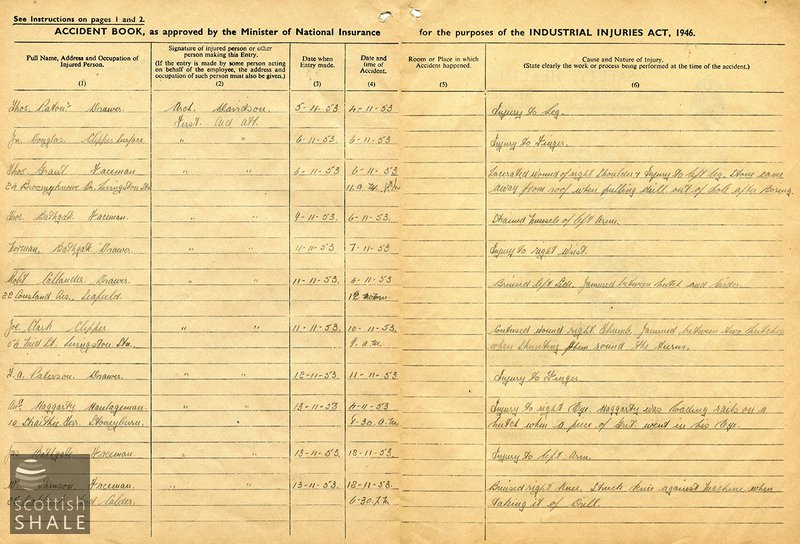 See Instructions on pages 1 and 2.
ACCIDENT BOOK, as approved by the Minister of National Insurance for the purposes of the INDUSTRIAL INJURIES ACT, 1946.
Full Name, Address and Occupation of Injured Person.
(1)
Signature of injured person or other person making this Entry.
(If the entry is made by some person acting on behalf of the employee, the address and occupation of such person must also be given.)
(2)
Date when Entry made.
(3)
Date and time of Accident.
(4)
Room or Place in which Accident happened.
(5)
Cause and Nature of Injury.
(State clearly the work or process being performed at the time of the accident.)
(6)
Thos. Paton Drawer Arch. Davidson. 5-11-53 4-11-53 Injury to Leg.
First Aid Att.
Jn. Douglas Clipper Surface " " 6-11-53 6-11-53 Injury to Finger.
Thos. Grant Faceman " " 6-11-53 6-11-53 Lacerated wound of right Shoulder & Injury to left leg. Stone came
24 Broomyknowe Dr. Livingston Stn 11 a.m. away from roof when pulling drill out of hole after boring.
Thos. Bathgate Faceman. " " 9-11-53 6-11-53 Strained muscle of left Arm.
Norman Bathgate Drawer " " 11-11-53 7-11-53 Injury to right wrist.
Robt Callander Drawer " " 11-11-53 6-11-53 Bruised left Side. Jammed between hutch and Girder.
Cousland Cres. Seafield 12
Joe. Clark Clipper " " 11-11-53 10-11-53 Contused wound right Thumb. Jammed between two hutches
54 Main St. Livingston Stn. 9. a.m. when Shunting them round the turns.
Paterson Drawer " " 12-11-53 11-11-53 Injury to Finger.
Haggarty Haulageman " " 13-11-53 4-11-53 Injury to right Eye. Haggarty was loading rails on a
10 Terr. Stoneyburn. 8-30 a.m. hutch when a piece of dirt went in his Eye.
Jas Bathgate Faceman " " 13-11-53 12-11-53 Injury to left Arm.
Lawson Faceman " " 13-11-53 12-11-53 Bruised right Knee. Struck Knee against machine when
Calder. 6-30 taking it of Drill.
scottish
SHALE